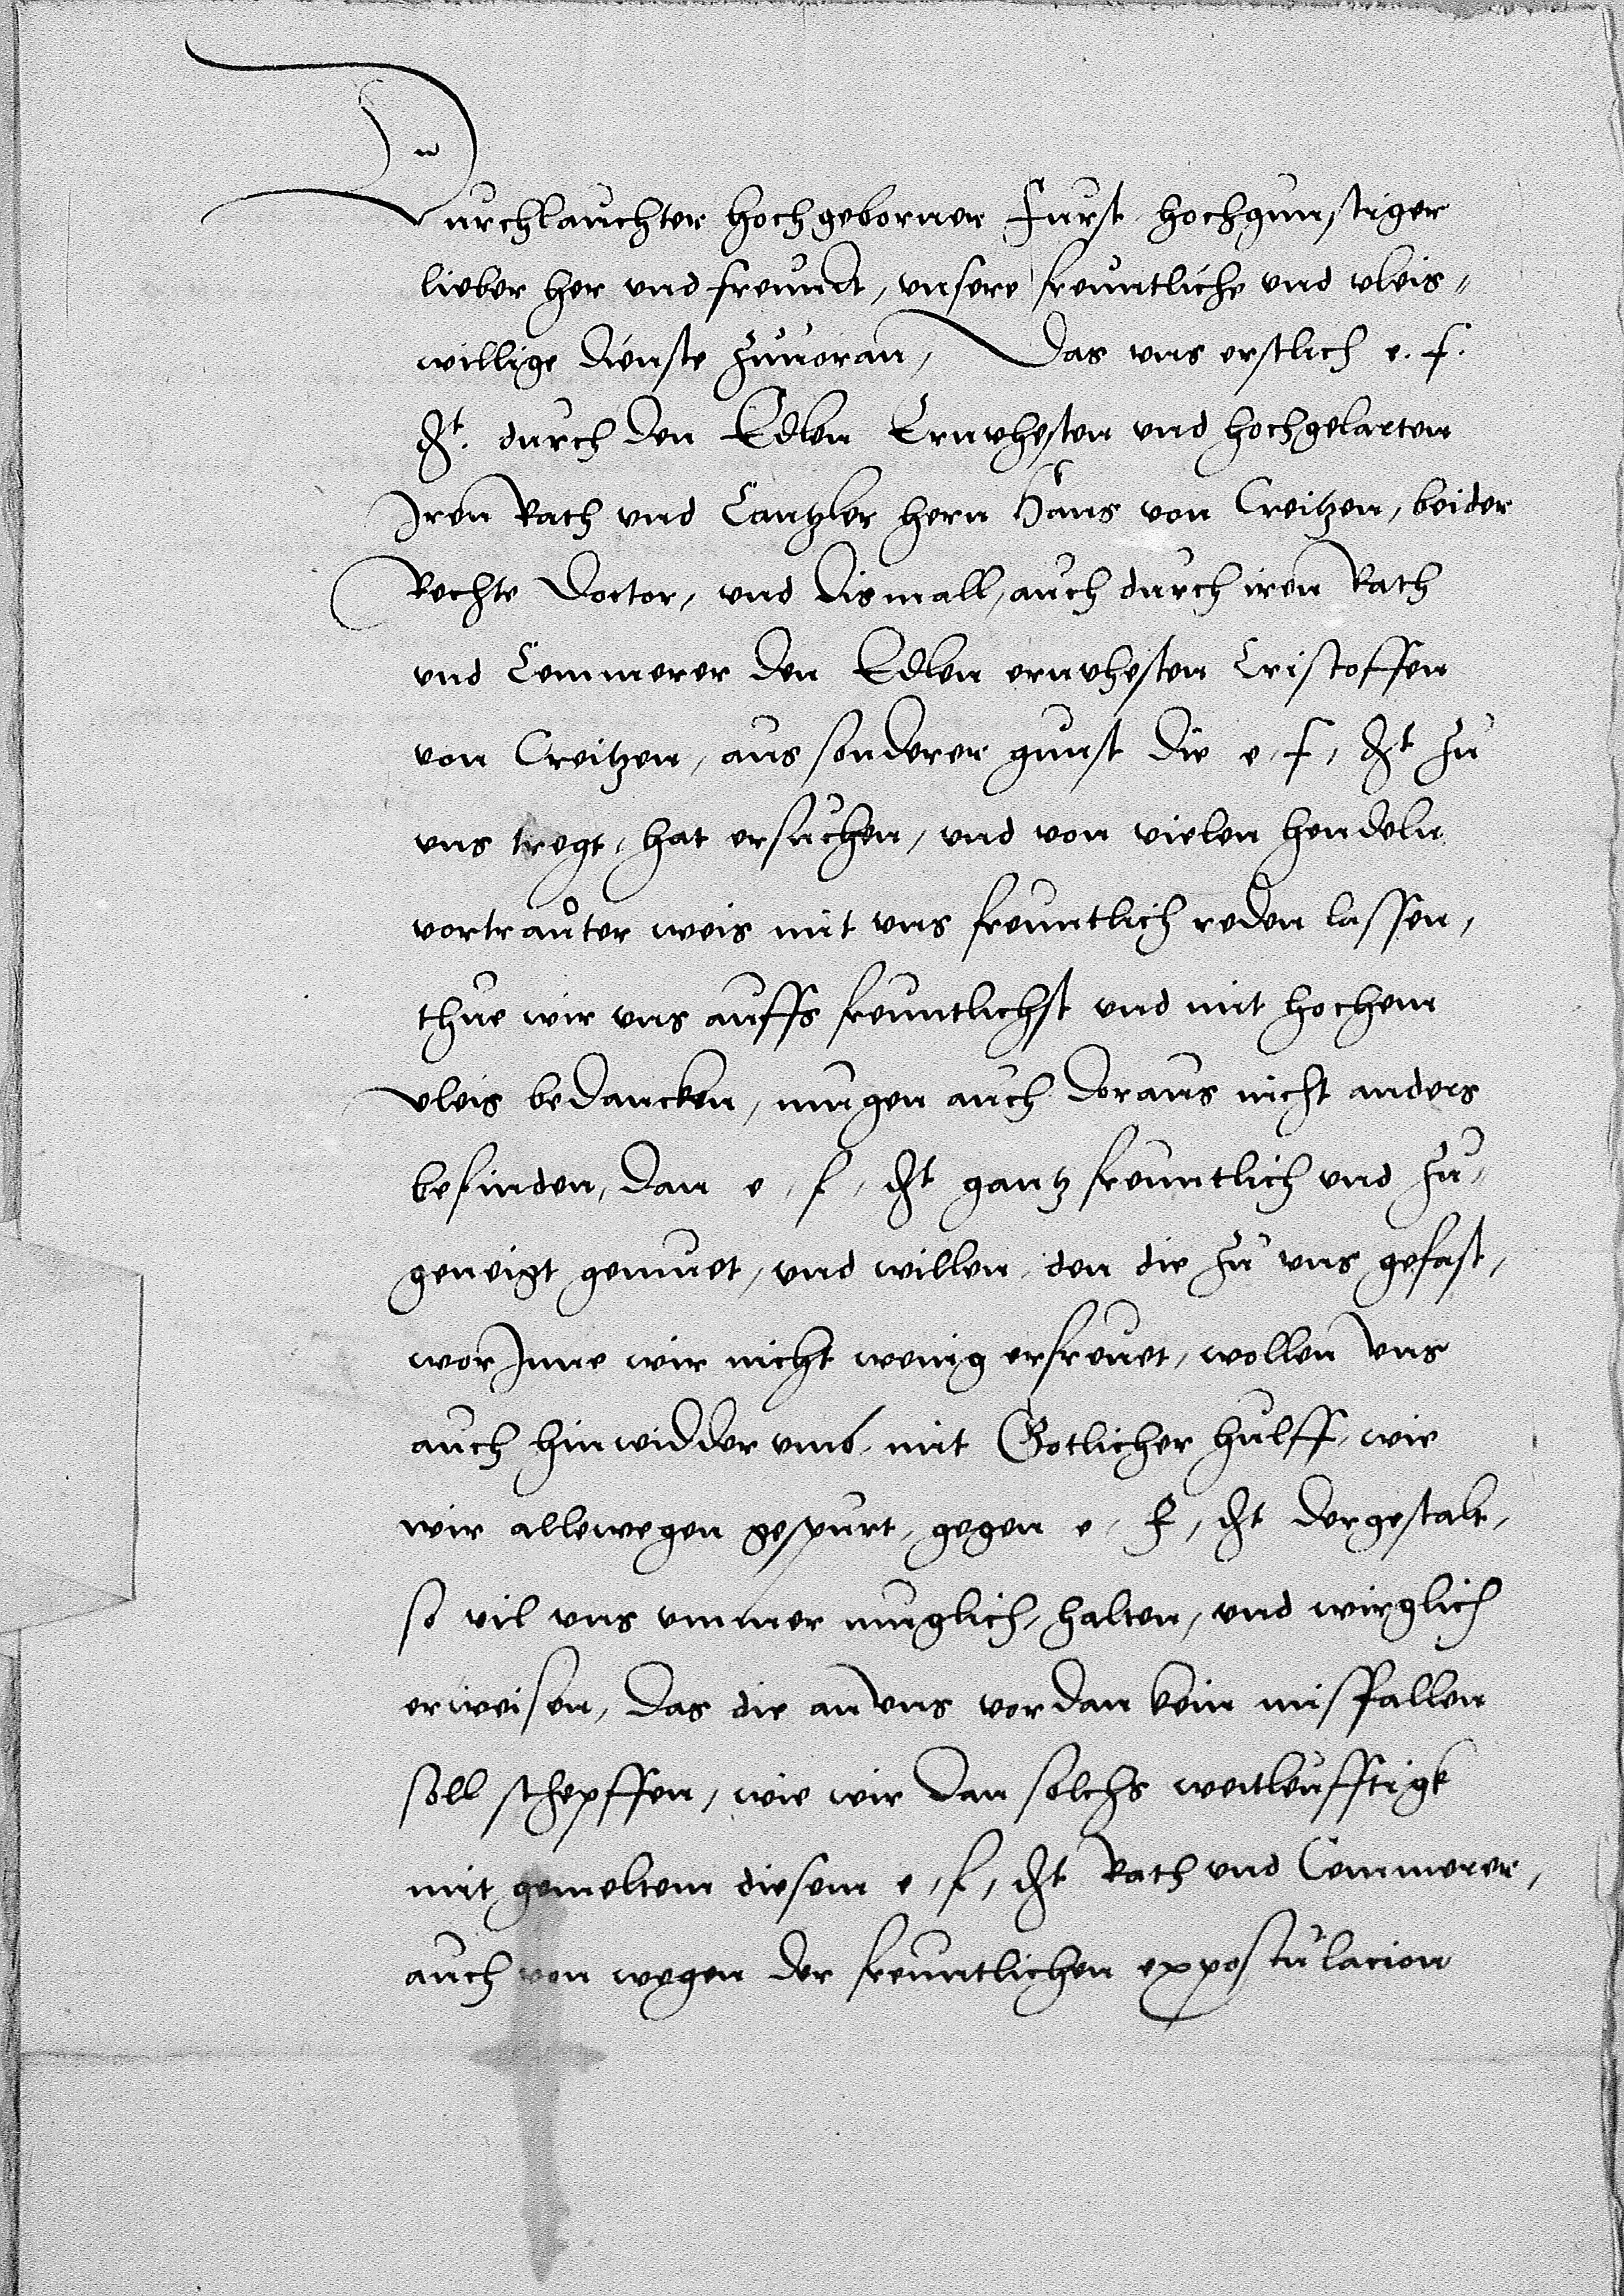 Durchlauchter hochgeborner Furst hochgunstiger
lieber her vnd freundt, vnsere freuntliche vnd vleis-
willige dienste zuuoran, Das vns erstlich e. f.
dt. durch den Edlen Ernvhesten vnd hochgelarten
Iren Rath vnd Cantzler hern Hans von Creitzen, beider
Rechte Doctor, vnd dismall, auch durch iren Rath
vnd Cemmerer den Edlen ernvhesten Cristoffen
von Creitzen, aus sonderer gunst die e, f, dt zu
vns tregt, hat ersuchen, vnd von vielen hendeln
vortrauter weis mit vns freuntlich reden lassen,
thue wir vns auffs freuntlichst vnd mit hochem
vleis bedancken, mugen auch doraus nicht anders
befinden, dan e, f, dt gantz freuntlich vnd zu-
geneigt gemuet, vnd willen, den die zu vns gefast,
wor Inne wir nicht wenig erfreuet, wollen vns
auch hinwidder vmb, mit Gotlicher hulff, wie
wir allewegen gespurt, gegen e, f, dt dergestalt,
so vil vns vmmer muglich, halten, vnd wirglich
erweisen, das die an vns vordan kein misfallen
soll schepffen, wie wir dan solchs weitleufftigk
mit gemeltem diesem e, f, dt Rath vnd Cemmerer,
auch von wegen der freuntlichen expostulacion